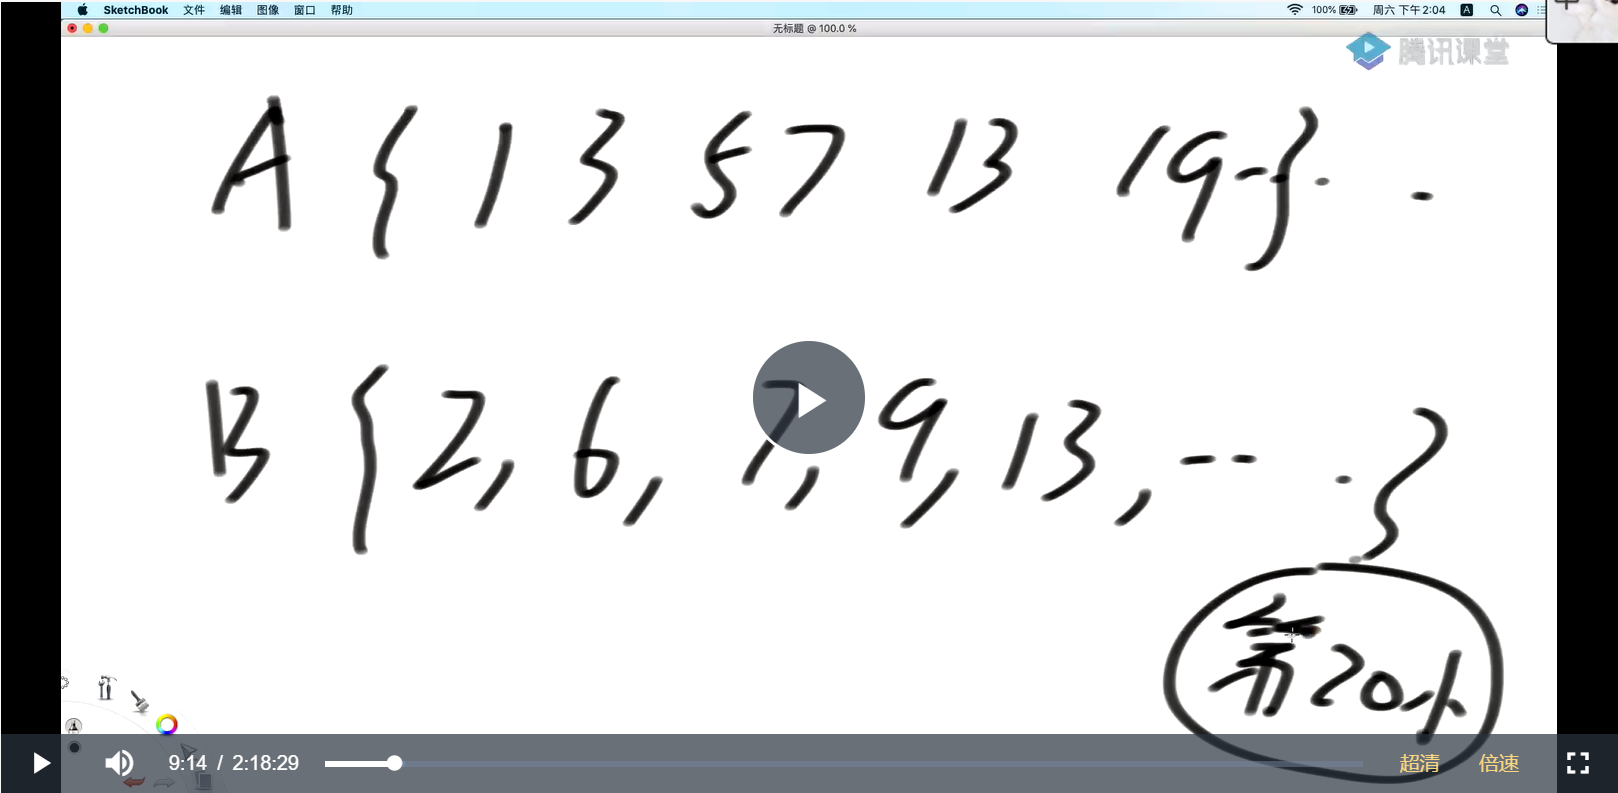 SketchBook 文件 编辑 图像 窗口 帮助 100% 周六 下午2:04 A
无标题 @ 100.0 %
腾讯课堂
A { 1 3 5 7 13 19 -- } · -
B { 2, 6, 7, 9, 13, -- · }
第20小
9:14 / 2:18:29 超清 倍速